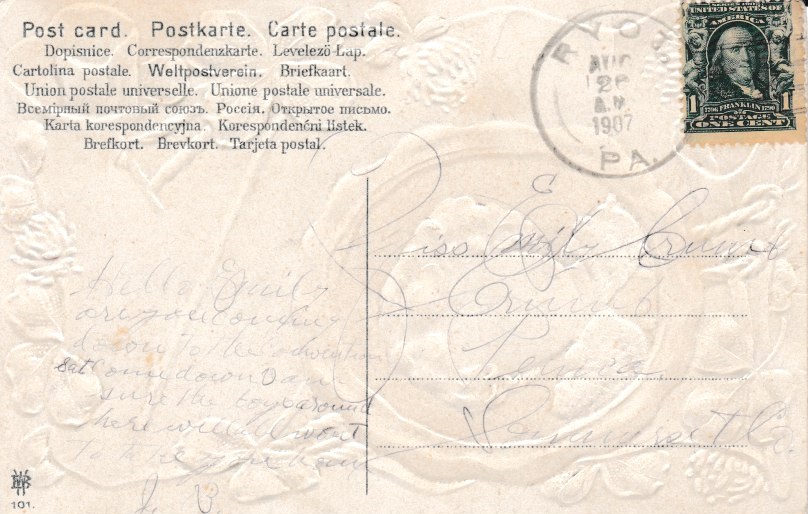 Post card. Postkarte. Carte postale.
Dopisnice. Correspondenzkarte. Levelező-Lap.
Cartolina postale. Weltpostverein. Briefkaart.
Union postale universelle. Unione postale universale.
Всемірный почтовый союзъ. Россія. Открытое письмо.
Karta korespondencyjna. Korespondenčni listek.
Brefkort. Brevkort. Tarjeta postal.
AUG
26
A.M.
1907
PA.
UNITED STATES OF AMERICA
1 1706 FRANKLIN 1790 1
POSTAGE
ONE CENT
Miss Emily Crumb
Crumb
Hello Emily
are you coming
down to the convention
Sat come down I am
sure the boys around
here will all want
to
101.